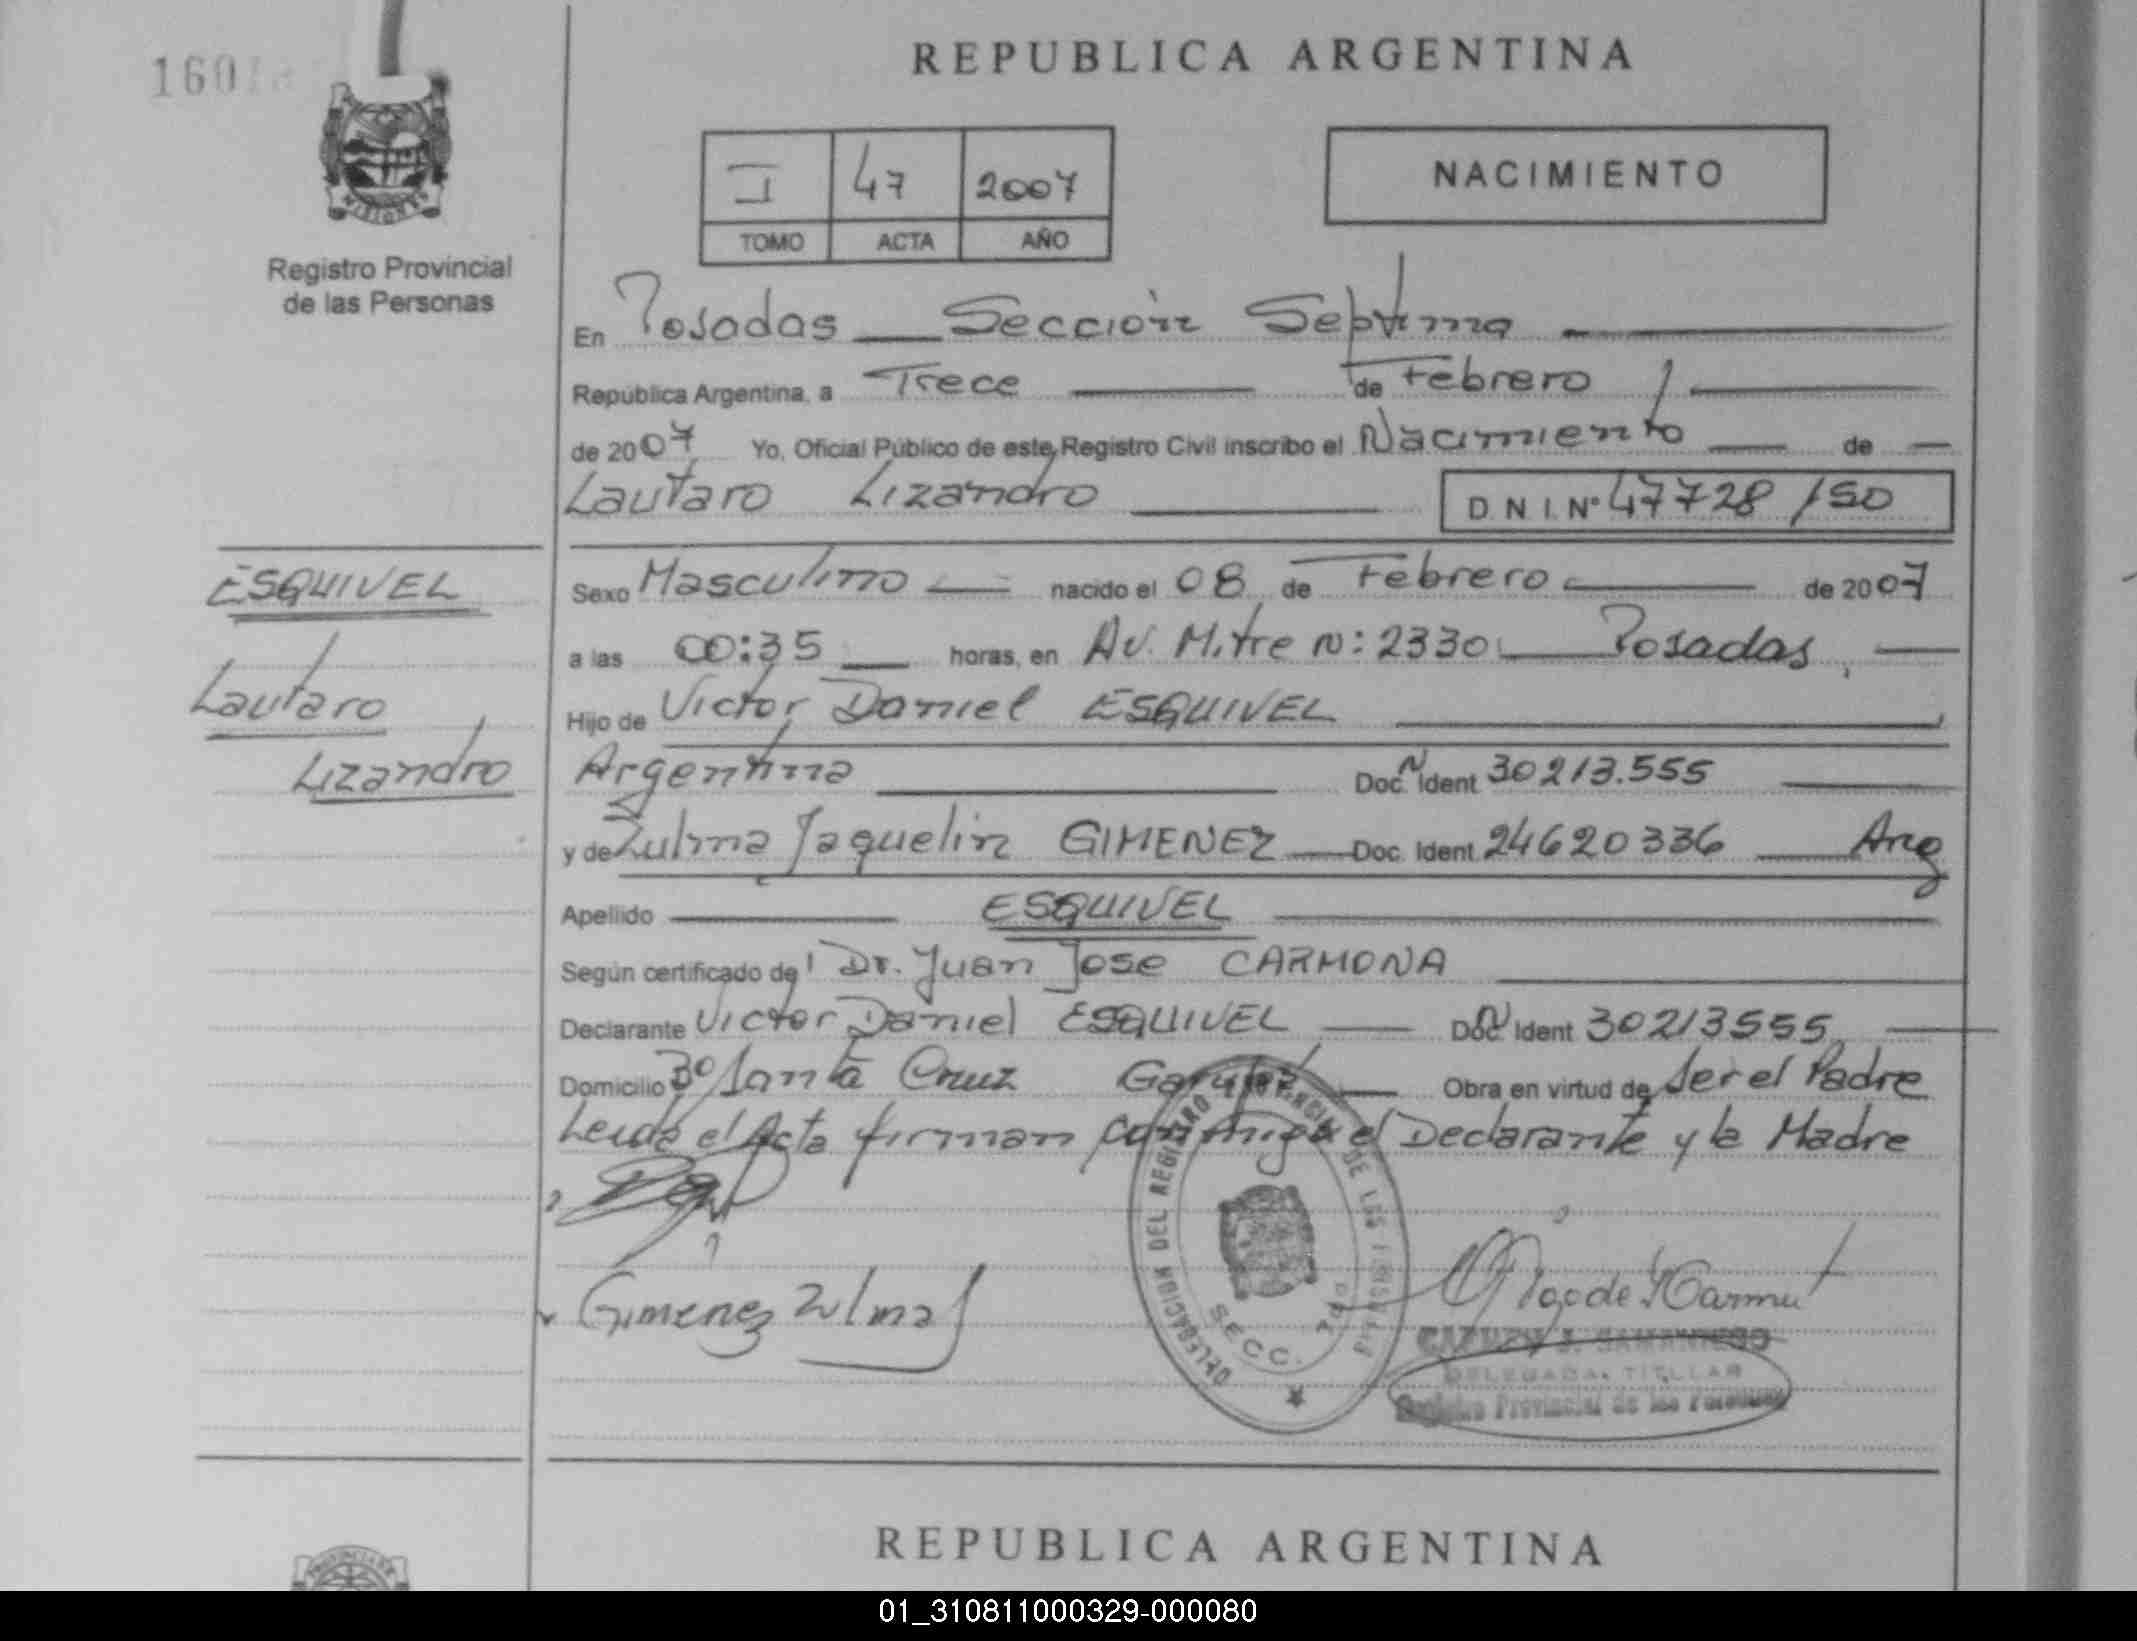 REPUBLICA ARGENTINA
1601
MISIONES
Registro Provincial
de las Personas
I 47 2007
TOMO ACTA AÑO
NACIMIENTO
En Posadas Sección Septima
República Argentina, a Trece de Febrero
de 2007 Yo, Oficial Público de este Registro Civil inscribo el Nacimiento de
Lautaro Lizandro D.N.I. Nº 47728150
ESQUIVEL
Lautaro
Lizandro
Sexo Masculino nacido el 08 de Febrero de 2007
a las 00:35 horas, en Av. Mitre N: 2330 Posadas,
Hijo de Victor Daniel ESQUIVEL
Argentina Doc. N Ident 30213.555
y de Zulma Jaquelin GIMENEZ Doc. Ident. 24620336 Arg
Apellido ESQUIVEL
Según certificado de Dr. Juan Jose CARMONA
Declarante Victor Daniel ESQUIVEL Doc. N Ident 30213555
Domicilio Bº Santa Cruz Garupá Obra en virtud de Ser el Padre
Leida el Acta firman conmigo el Declarante y la Madre
Gimenez Zulma J
DELEGACION DEL REGISTRO PROVINCIAL DE LAS PERSONAS
SECC. 7ma
CARMEN S. SAMANIEGO
DELEGADA TITULAR
Registro Provincial de las Personas
REPUBLICA ARGENTINA
01_310811000329-000080